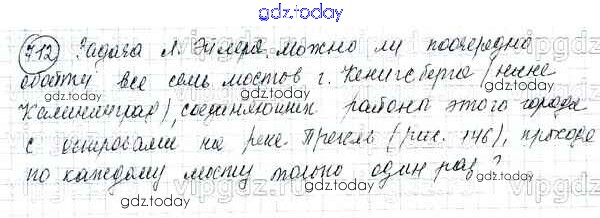 gdz.today
712 Задача Л. Эйлера. можно ли поочередно
обойти все семь мостов г. Кенигсберга (ныне
Калининград), соединяющих районы этого города
с островами на реке Преголь (рис. 146), проходя
по каждому мосту только один раз?
gdz.today